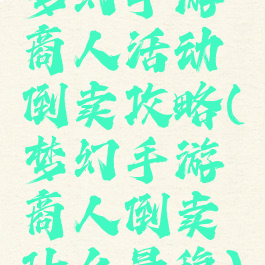 梦幻手游
商人活动
倒卖攻略(
梦幻手游
商人倒卖